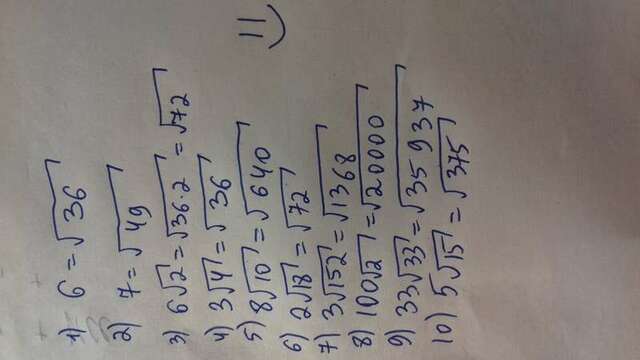 1) 6 = √36
2) 7 = √49
3) 6√2 = √36·2 = √72
4) 3√4 = √36
5) 8√10 = √640
6) 2√18 = √72
7) 3√152 = √1368
8) 100√2 = √20000
9) 33√33 = √35937
10) 5√15 = √375